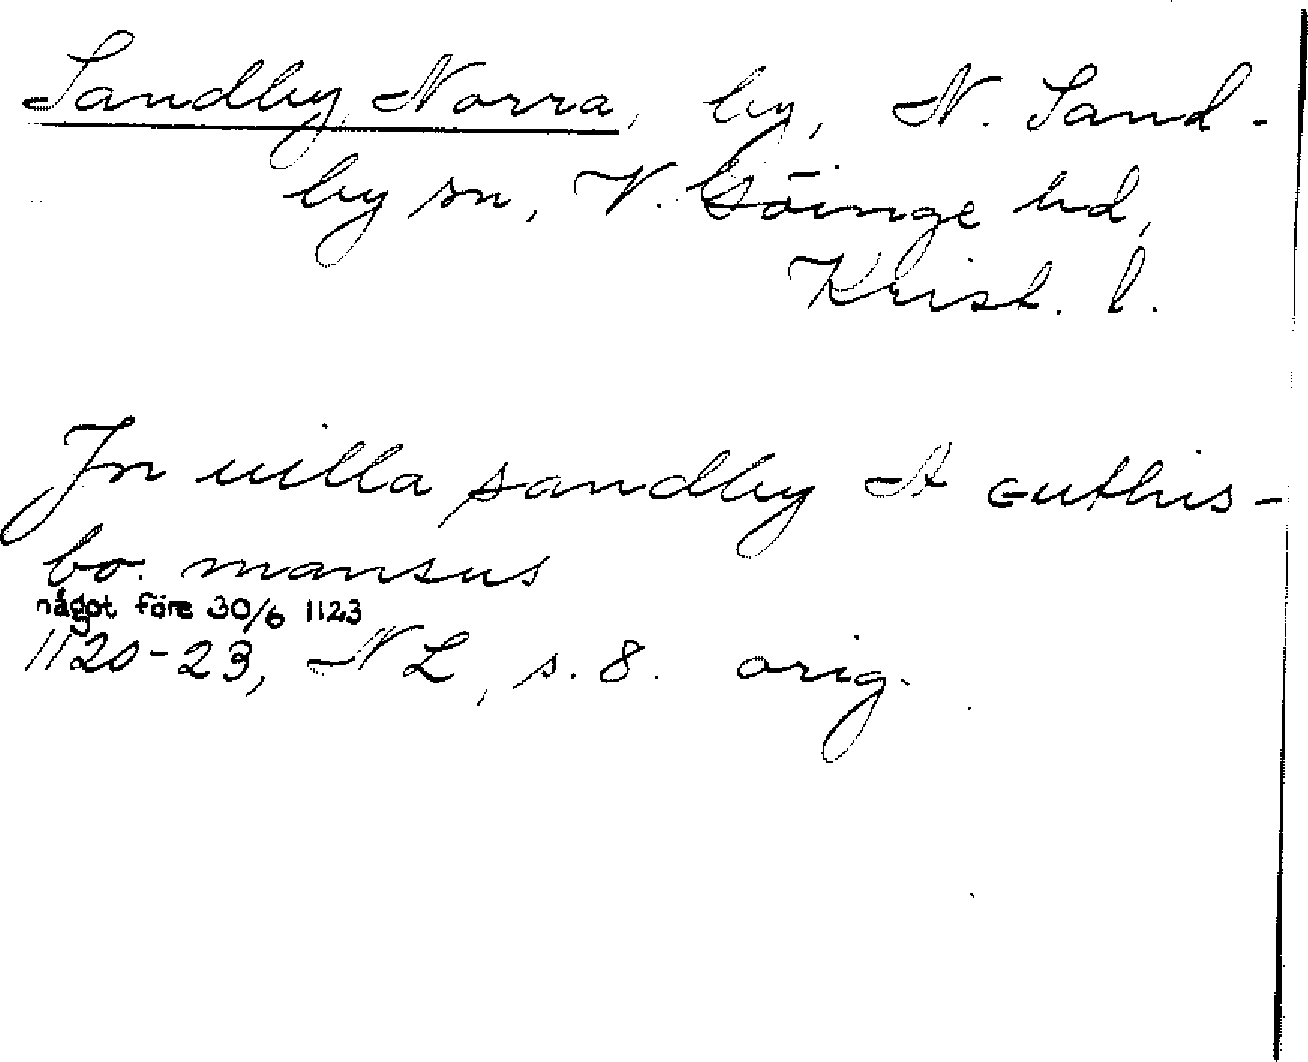 Sandby, Norra, by, N. Sand-
by sn, V. Göinge hd,
Krist. l.
Jn uilla sandby et guthis-
bo. mansus
något före 30/6 1123
1120-23, NL, s. 8. orig.